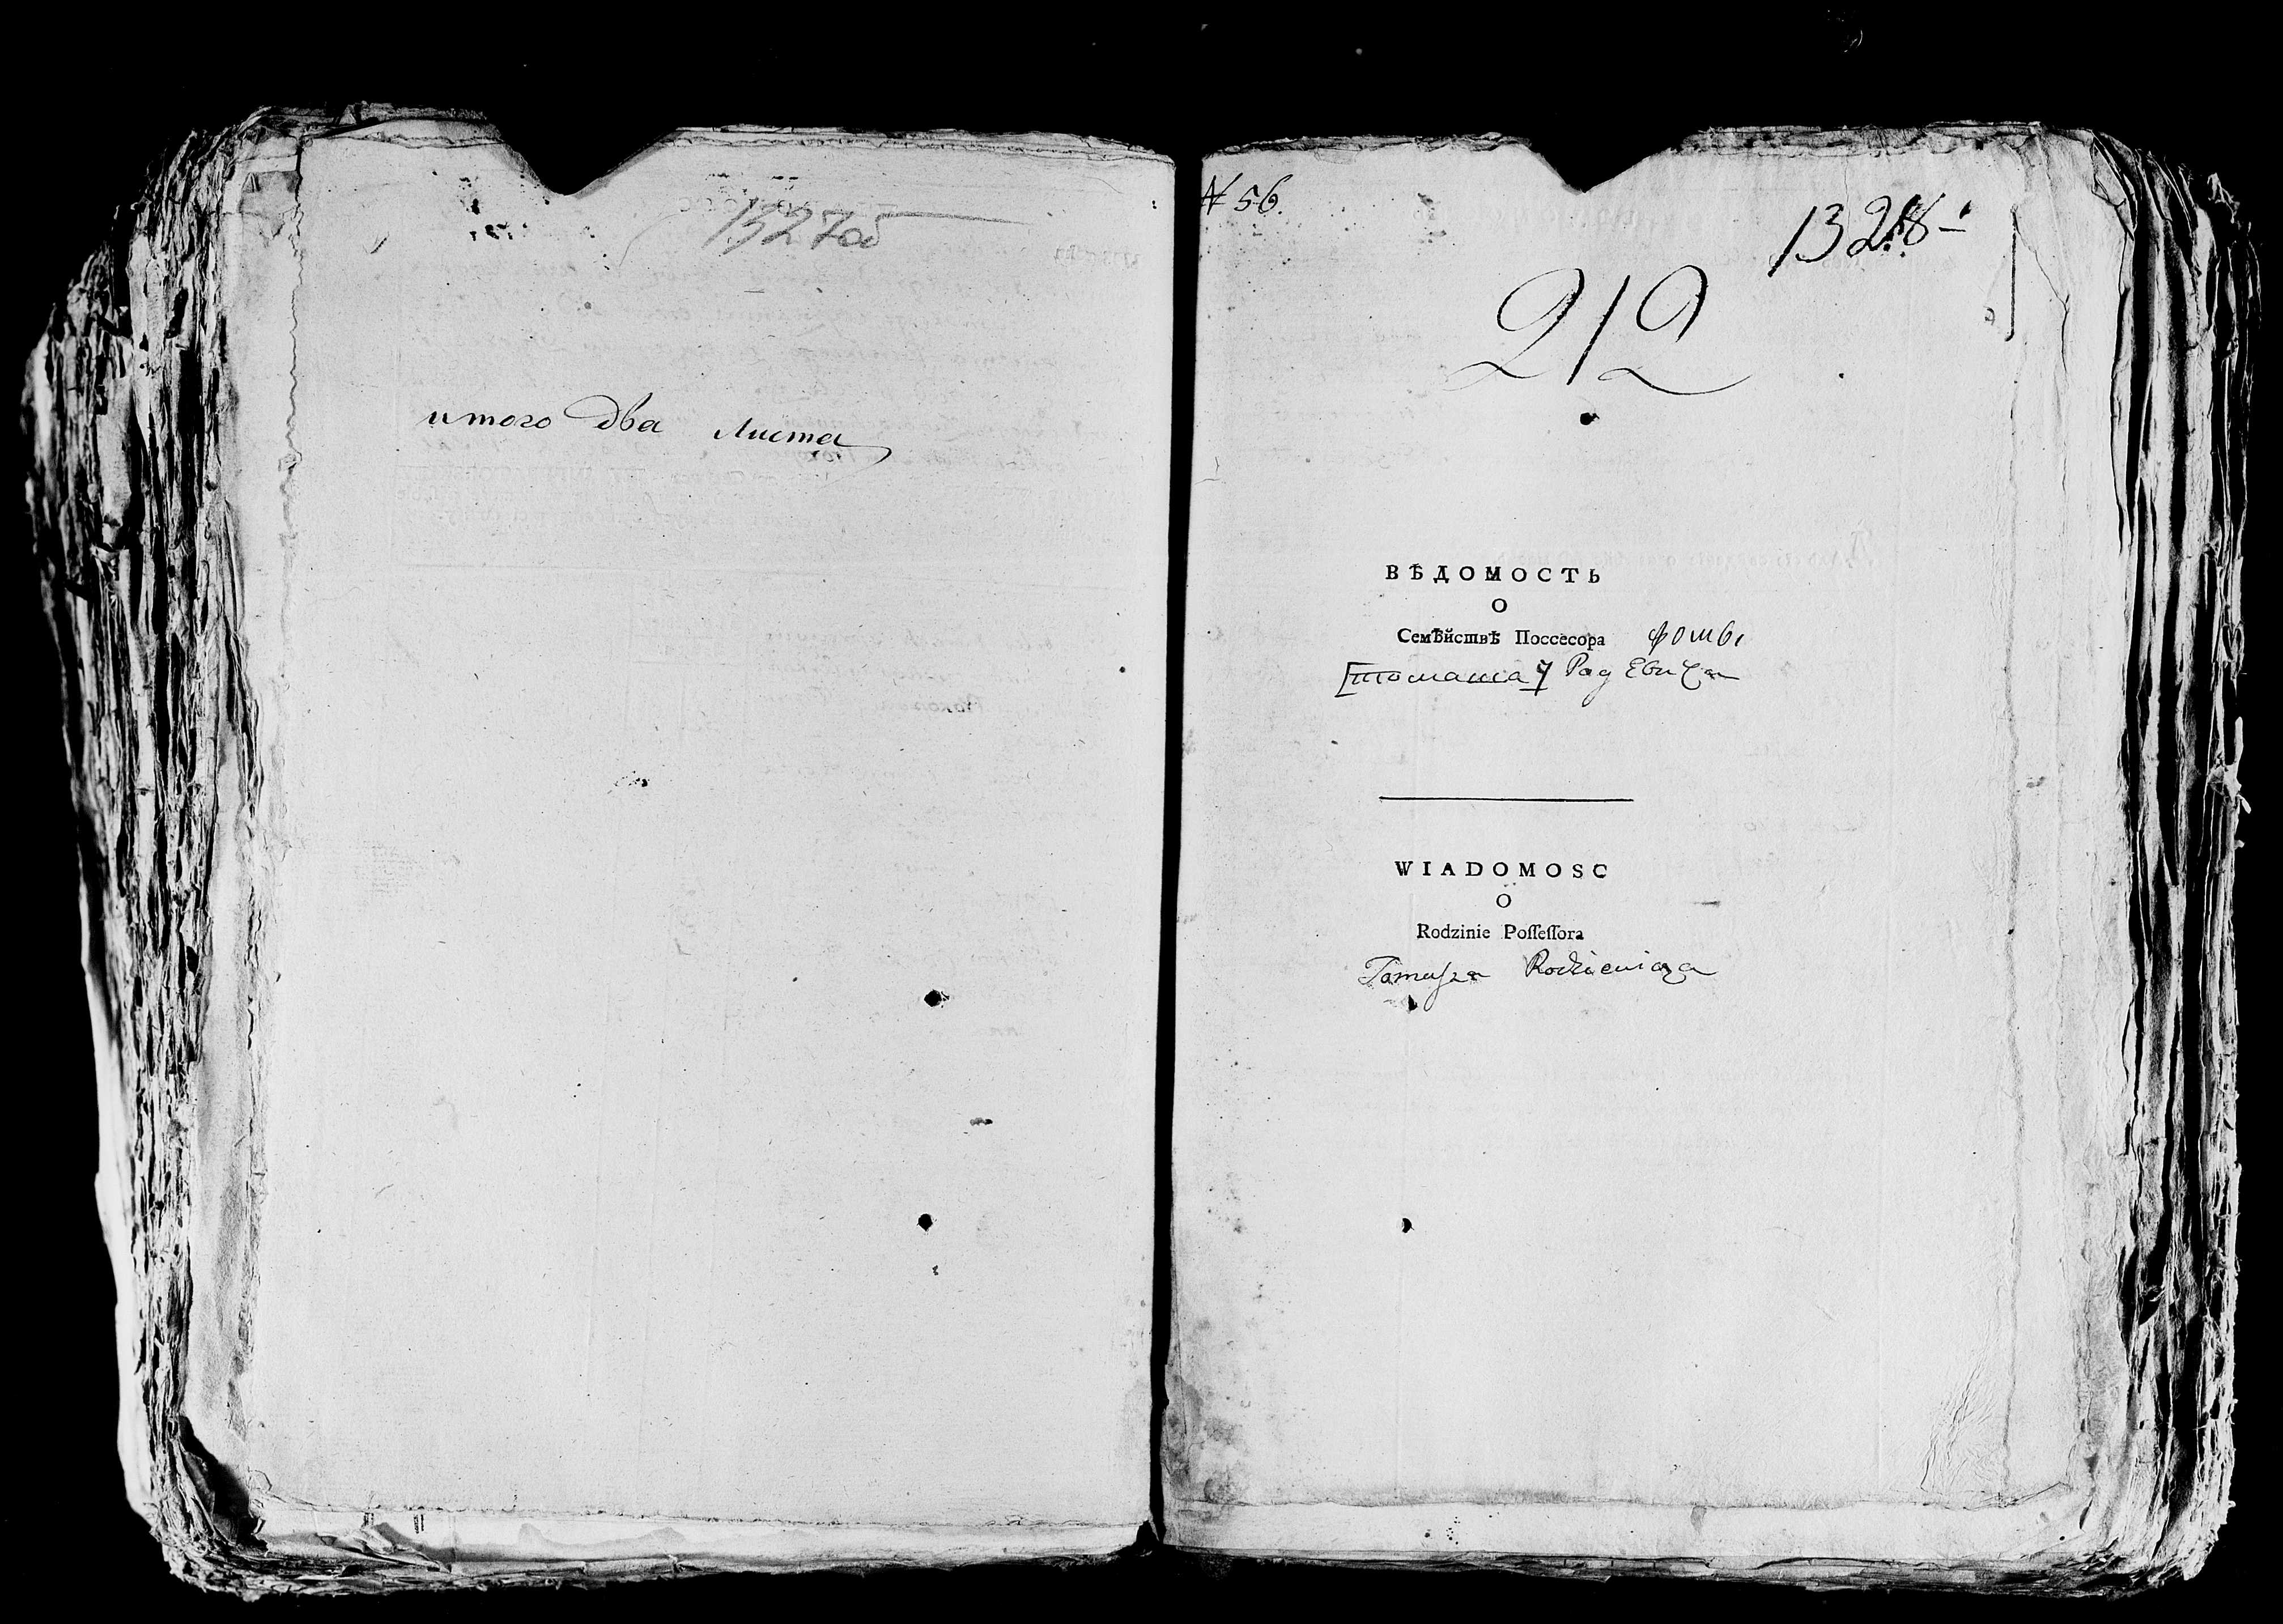 1327об
итого два листа
N 56.
1328
212
ВѢДОМОСТЬ
О
Семѣйствѣ Поссесора фомы
[томаша] Радевича
WIADOMOSC
O
Rodzinie Poſſeſſora
Tomaſza Rodziewicza